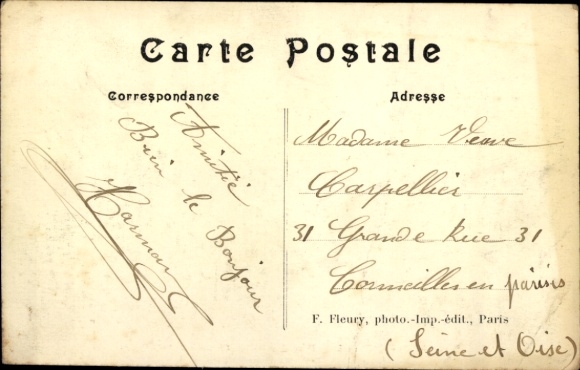 Carte Postale
Correspondance
Adresse
Amitié
Bien le Bonjour
Madame Veuve
Carpellier
31 Grande Rue 31
Cormeilles en parisis
F. Fleury, photo.-Imp.-édit., Paris
(Seine et Oise)